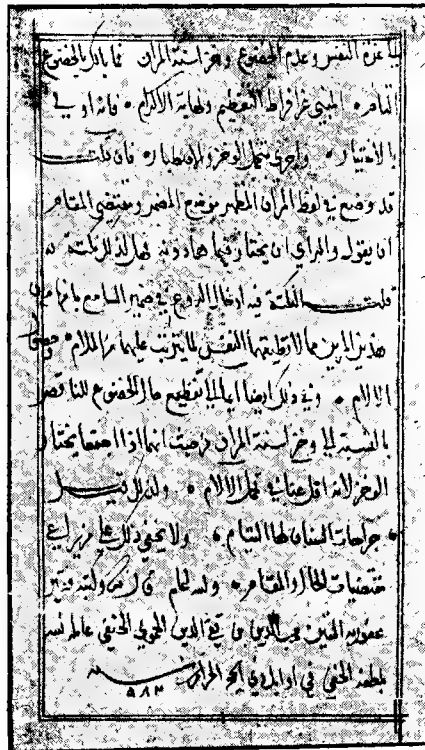 عزة النفس وعدم الخضوع وخز اسنة المران فما بالك بالخضوع
التام المبني عن افراط التعظيم ونهاية الاكرام فانه اولى
بالاختيار واحرى بتحمل الوخز والاصطبار فان قلت
قد وضع في لفظ المران المظهر موضع المضمر ومقتضى المقام
ان يقول والراي ان يختار فيما هما دونه فهل لذلك نكتة
قلت النكتة فيه ادخال الروع في ضمير السامع
هذين المرين مما لا تطيقهما النفس لما يترتب عليهما من الملام
الالام وفي ذلك ايضا ايماء الى تفظيع حال الخضوع للناقص
بالنسبة الى وخز اسنة المران من حيث انهما اذا اجتمعا يختار
الوخز لانه اقل عناء في تحمل الالام ولذلك قيل
جراحات السنان لها التيام ولا يخفى ذلك على من يراعي
مقتضيات الحال والمقام قال وكتبه فقير
عفو ربه محب الدين بن تقي الدين الحموي الحنفي عامله
بلطفه الخفي في اوايل ذي الحجة الحرام سنة
٩٨٢